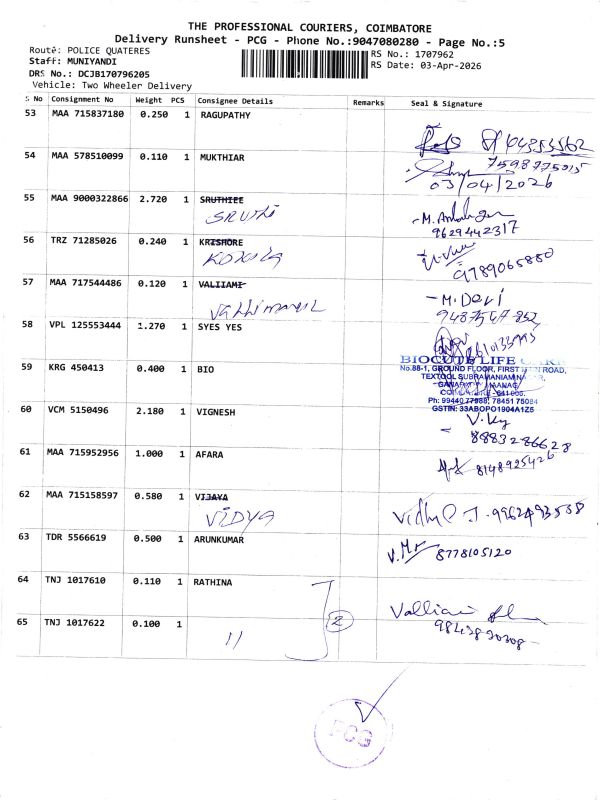 THE PROFESSIONAL COURIERS, COIMBATORE
Delivery Runsheet - PCG - Phone No.:9047080280 - Page No.:5
Route: POLICE QUATERES
RS No.: 1707962
Staff: MUNIYANDI
RS Date: 03-Apr-2026
DRS No.: DCJB170796205
Vehicle: Two Wheeler Delivery
S No Consignment No Weight PCS Consignee Details Remarks Seal & Signature
53 MAA 715837180 0.250 1 RAGUPATHY
54 MAA 578510099 0.110 1 MUKTHIAR
7598775015
03/04/2026
55 MAA 9000322866 2.720 1 SRUTHIEE
SRUTHI
9629442317
56 TRZ 71285026 0.240 1 KRISHORE
9789065880
57 MAA 717544486 0.120 1 VALIIAMI
- M. Devi
58 VPL 125553444 1.270 1 SYES YES
59 KRG 450413 0.400 1 BIO
BIOCUTE LIFE CARE
No.88-1, GROUND FLOOR, FIRST MAIN ROAD,
TEXTOOL SUBRAMANIAM
COIMBATORE - 641006.
Ph: 99440 77988, 78451 75084
GSTIN: 33ABOPO1904A1Z5
60 VCM 5150496 2.180 1 VIGNESH
V. Ky
8883286628
61 MAA 715952956 1.000 1 AFARA
8148925426
62 MAA 715158597 0.580 1 VIJAYA
VIDYA
Vidhya J. 9962493538
63 TDR 5566619 0.500 1 ARUNKUMAR
8778105120
64 TNJ 1017610 0.110 1 RATHINA
2
Valliai
65 TNJ 1017622 0.100 1
11
PCG